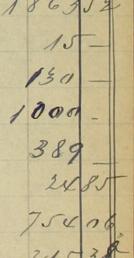 186352
15 —
130 —
1000 -
389 —
2485
75406